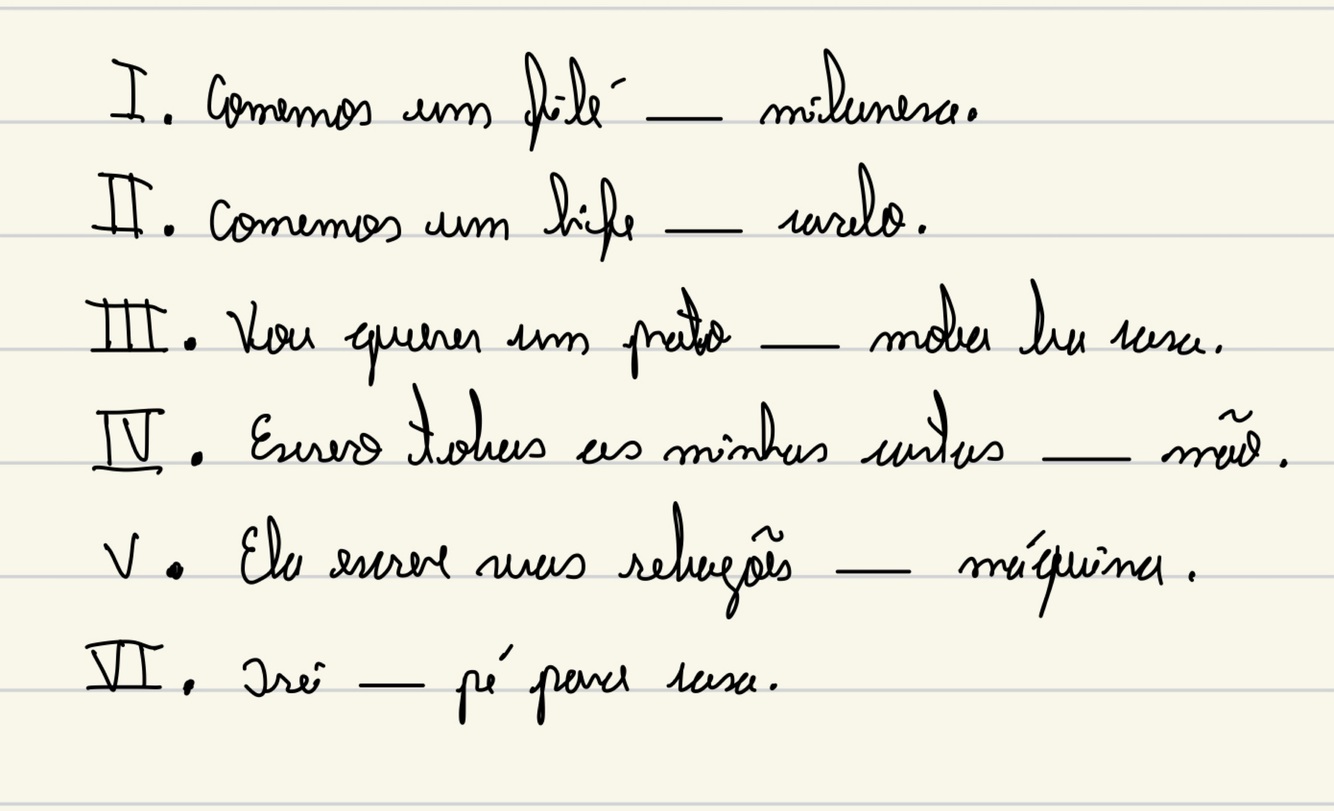 I. Comemos um filé ___ milanesa.
II. Comemos um bife ___ cavalo.
III. Vou querer um prato ___ moda da casa.
IV. Escrevo todas as minhas cartas ___ mão.
V. Ela escreve suas redações ___ máquina.
VI. Irei ___ pé para casa.